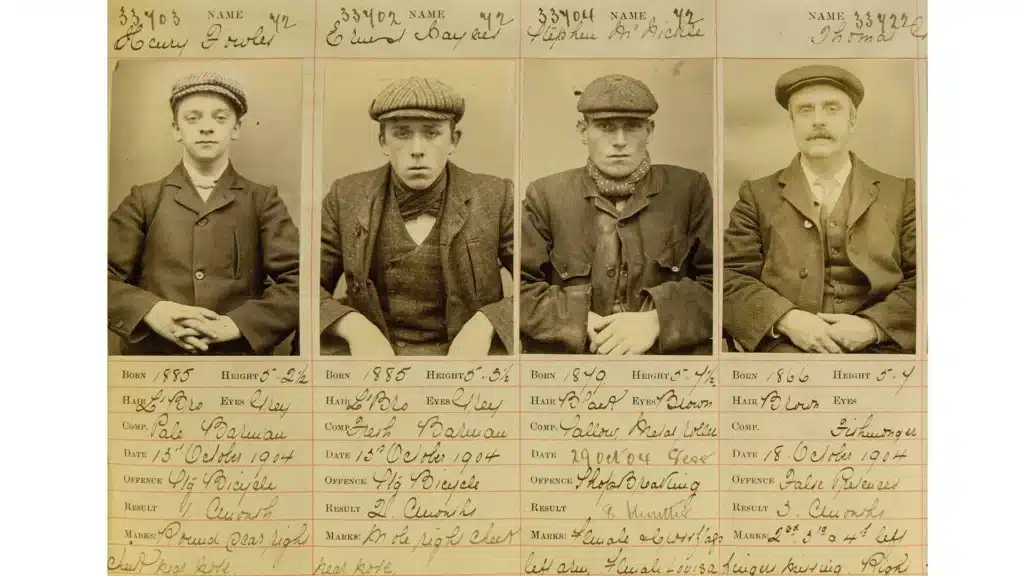 33703 NAME 72
Henry Fowles
33702 NAME 72
Haynes
33704 NAME 72
Stephen McNickle
NAME 33722
Thomas
BORN 1885 HEIGHT 5-2½
HAIR L'Bro EYES Grey
COMP. Pale Barman
DATE 13th October 1904
OFFENCE Stg Bicycle
RESULT 1 Month
MARKS: Round scar right
cheek near nose
BORN 1885 HEIGHT 5-3½
HAIR L'Bro EYES Grey
COMP. Fresh Barman
DATE 13th October 1904
OFFENCE Stg Bicycle
RESULT 2 Months
MARKS: Mole right cheek
near nose
BORN HEIGHT 5-4½
HAIR Black EYES Brown
COMP. Sallow, Metal Roller
DATE Oct 04
OFFENCE Shop Breaking
RESULT 6 Months
MARKS: Female & Cross flags
left arm, Female Louisa
BORN 1866 HEIGHT 5-4
HAIR Brown EYES
COMP. Fishmonger
DATE 18 October 1904
OFFENCE False Pretences
RESULT 3 Months
MARKS: 2nd 3rd & 4th left
fingers missing.